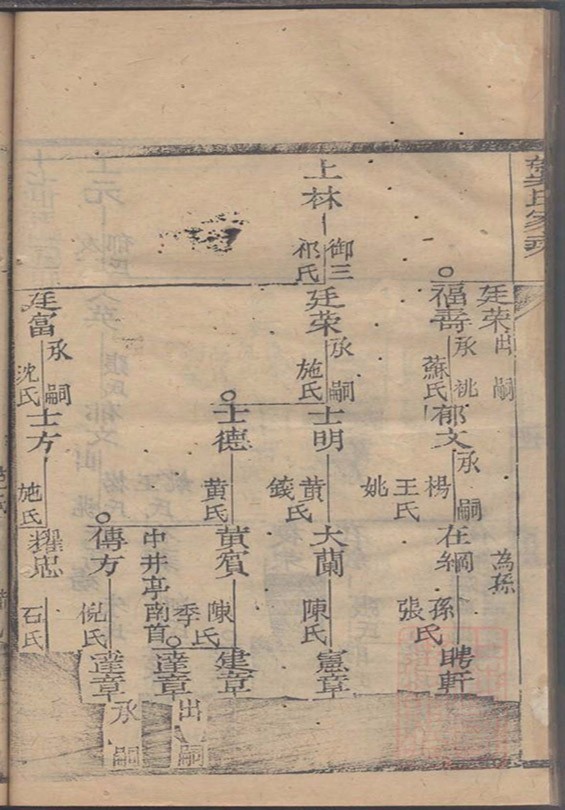 葉氏家乘
廷荣出嗣
為孫
福壽承祧
蘇氏
郁文承嗣
楊
王氏
姚
在綱
孫
張氏
聘軒
士林
御三
祁氏
廷荣承嗣
施氏
士明
黄
錢氏
大蘭
陳氏
憲章
士德
黄氏
黄賓
陳
季氏
建章
達章出嗣
中井亭南首
傳方
倪氏
達章承嗣
廷富承嗣
沈氏
士方
施氏
耀忠
石氏